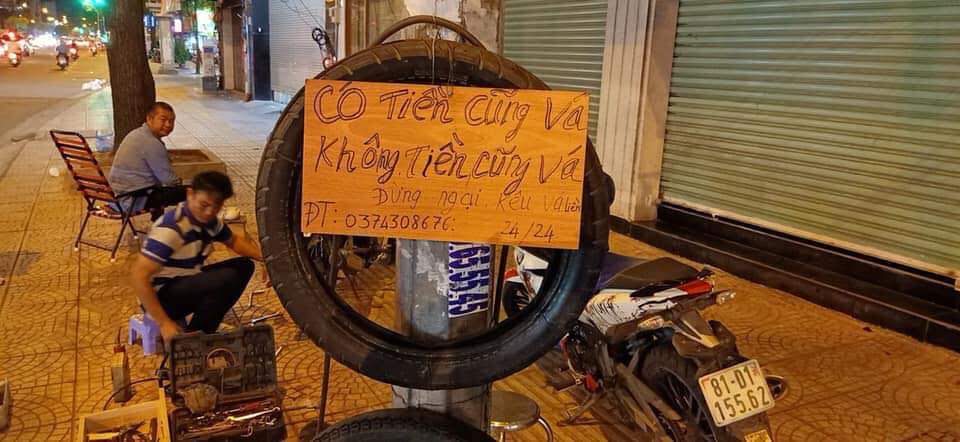 CÓ Tiền Cũng Vá
Không Tiền Cũng Vá
Đừng ngại kêu vá liền
ĐT: 0374308676. 24/24
81-D1
155.62